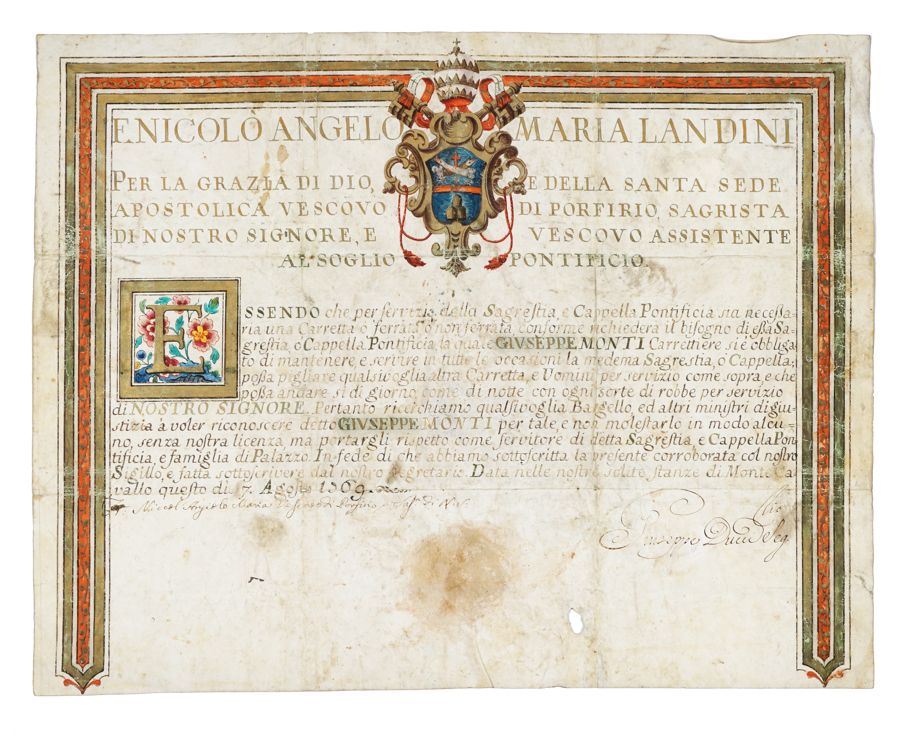 F. NICOLÒ ANGELO MARIA LANDINI
PER LA GRAZIA DI DIO, E DELLA SANTA SEDE
APOSTOLICA VESCOVO DI PORFIRIO, SAGRISTA
DI NOSTRO SIGNORE, E VESCOVO ASSISTENTE
AL SOGLIO PONTIFICIO.
ESSENDO che per servizio della Sagrestia, e Cappella Pontificia sia necessa-
ria una Carretta ò ferrata ò non ferrata conforme richiederà il bisogno di essa Sa-
grestia, e Cappella Pontificia, la quale GIVSEPPE MONTI Carrettiere si è obbliga-
to di mantenere e servire in tutte le occasioni la medema Sagrestia, ò Cappella,
possa pigliare qualsivoglia altra Carretta, e Uomini per servizio come sopra, e che
possa andare si di giorno, come di notte con ogni sorte di robbe per servizio
di NOSTRO SIGNORE. Pertanto ricerchiamo qualsivoglia Bargello, ed altri ministri di giu-
stizia à voler riconoscere detto GIVSEPPE MONTI per tale, e non molestarlo in modo alcu-
no, senza nostra licenza ma portargli rispetto come servitore di detta Sagrestia, e Cappella Pon
tificia, e famiglia di Palazzo. In fede di che abbiamo sottoscritta la presente corroborata col nostro
Sigillo, e fatta sottoscrivere dal nostro Segretario. Data nelle nostre solite stanze di Monte Ca-
vallo questo di 17. Agosto 1769
Niccol Angelo Maria Vescovo di Porfirio
Giuseppe Duca Seg